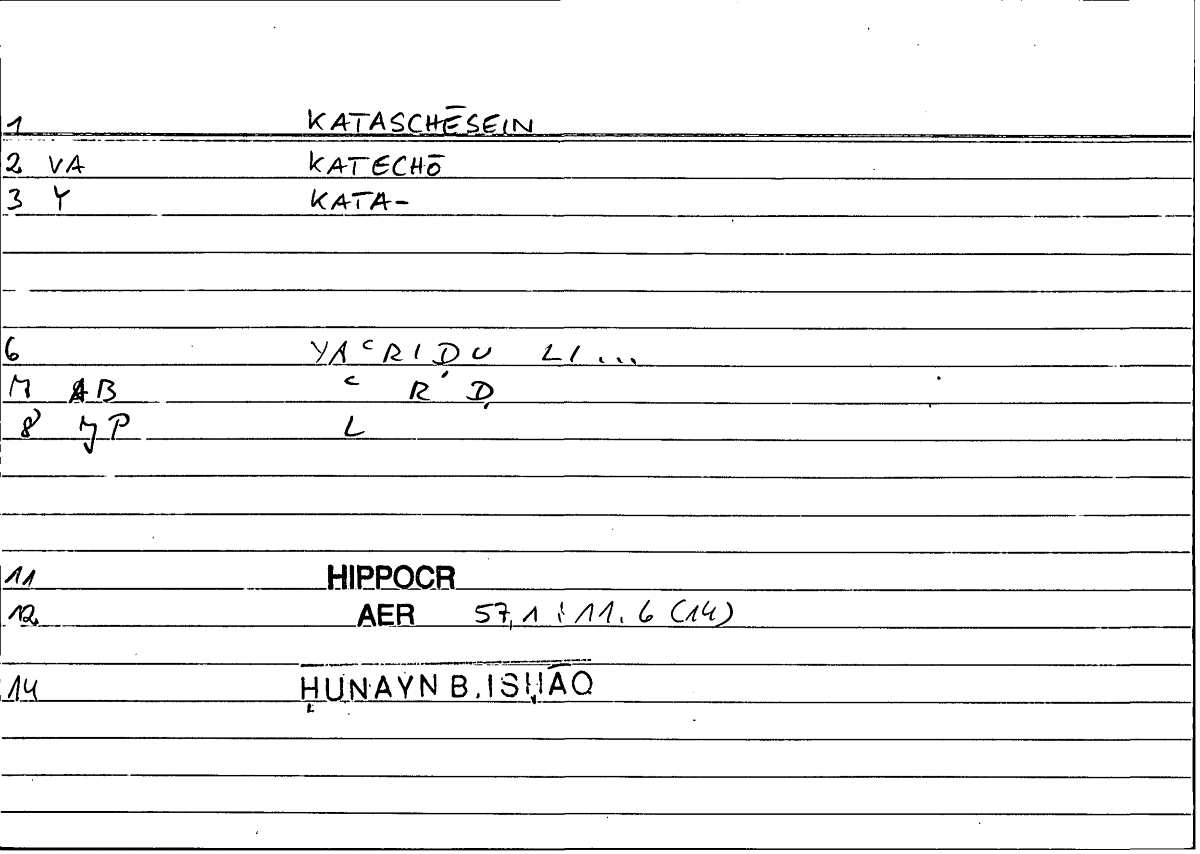 1 KATASCHĒSEIN
2 VA KATECHŌ
3 Y KATA-
6 YAʿRIḌU LI...
7 AB ʿ R Ḍ
8 JP L
11 HIPPOCR
12 AER 57,1 ; 11.6 (14)
14 ḤUNAYN B. ISḤĀQ